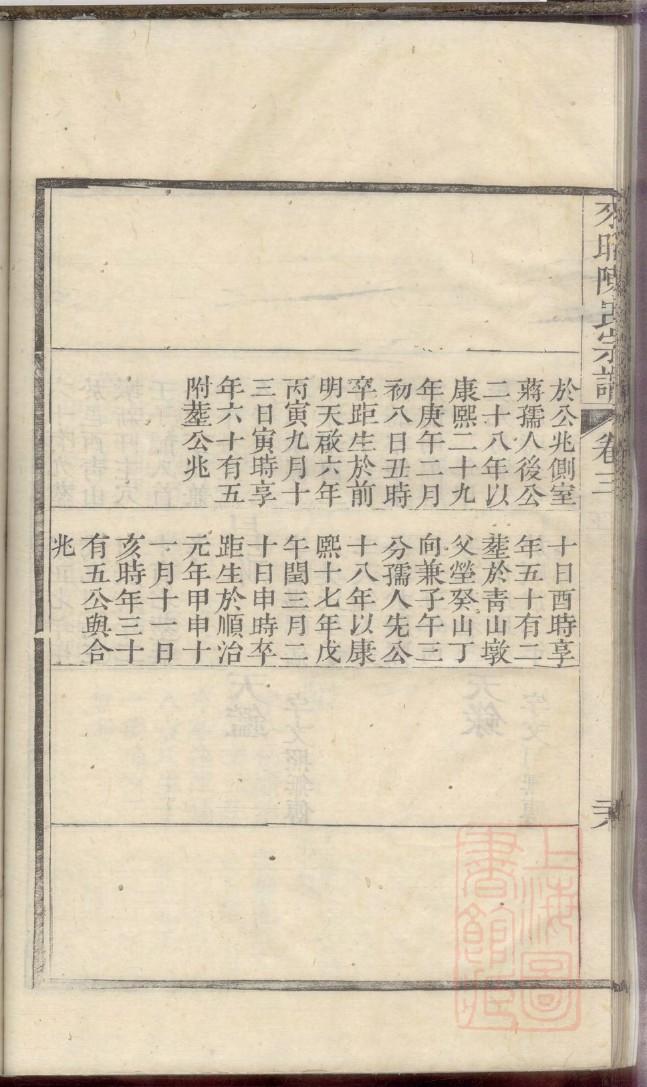 陳氏宗譜
卷三
於公兆側室
蔣孺人後公
二十八年以
康熙二十九
年庚午二月
初八日丑時
卒距生於前
明天啟六年
丙寅九月十
三日寅時享
年六十有五
附塟公兆
十日酉時享
年五十有二
塟於青山墩
父塋癸山丁
向兼子午三
分孺人先公
十八年以康
熙十七年戊
午閏三月二
十日申時卒
距生於順治
元年甲申十
一月十一日
亥時年三十
有五公與合
兆
上海圖
書館藏